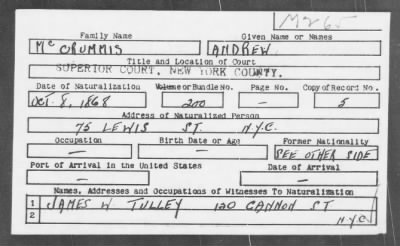 M265
Family Name Given Name or Names
Mc CRUMMIS ANDREW
Title and Location of Court
SUPERIOR COURT, NEW YORK COUNTY.
Date of Naturalization Volume or Bundle No. Page No. Copy of Record No.
Oct. 8, 1868 200 — 5
Address of Naturalized Person
75 LEWIS ST. N.Y.C.
Occupation Birth Date or Age Former Nationality
— — SEE OTHER SIDE
Port of Arrival in the United States Date of Arrival
— —
Names, Addresses and Occupations of Witnesses To Naturalization
1 JAMES W TULLEY 120 CANNON ST
2 N.Y.C.